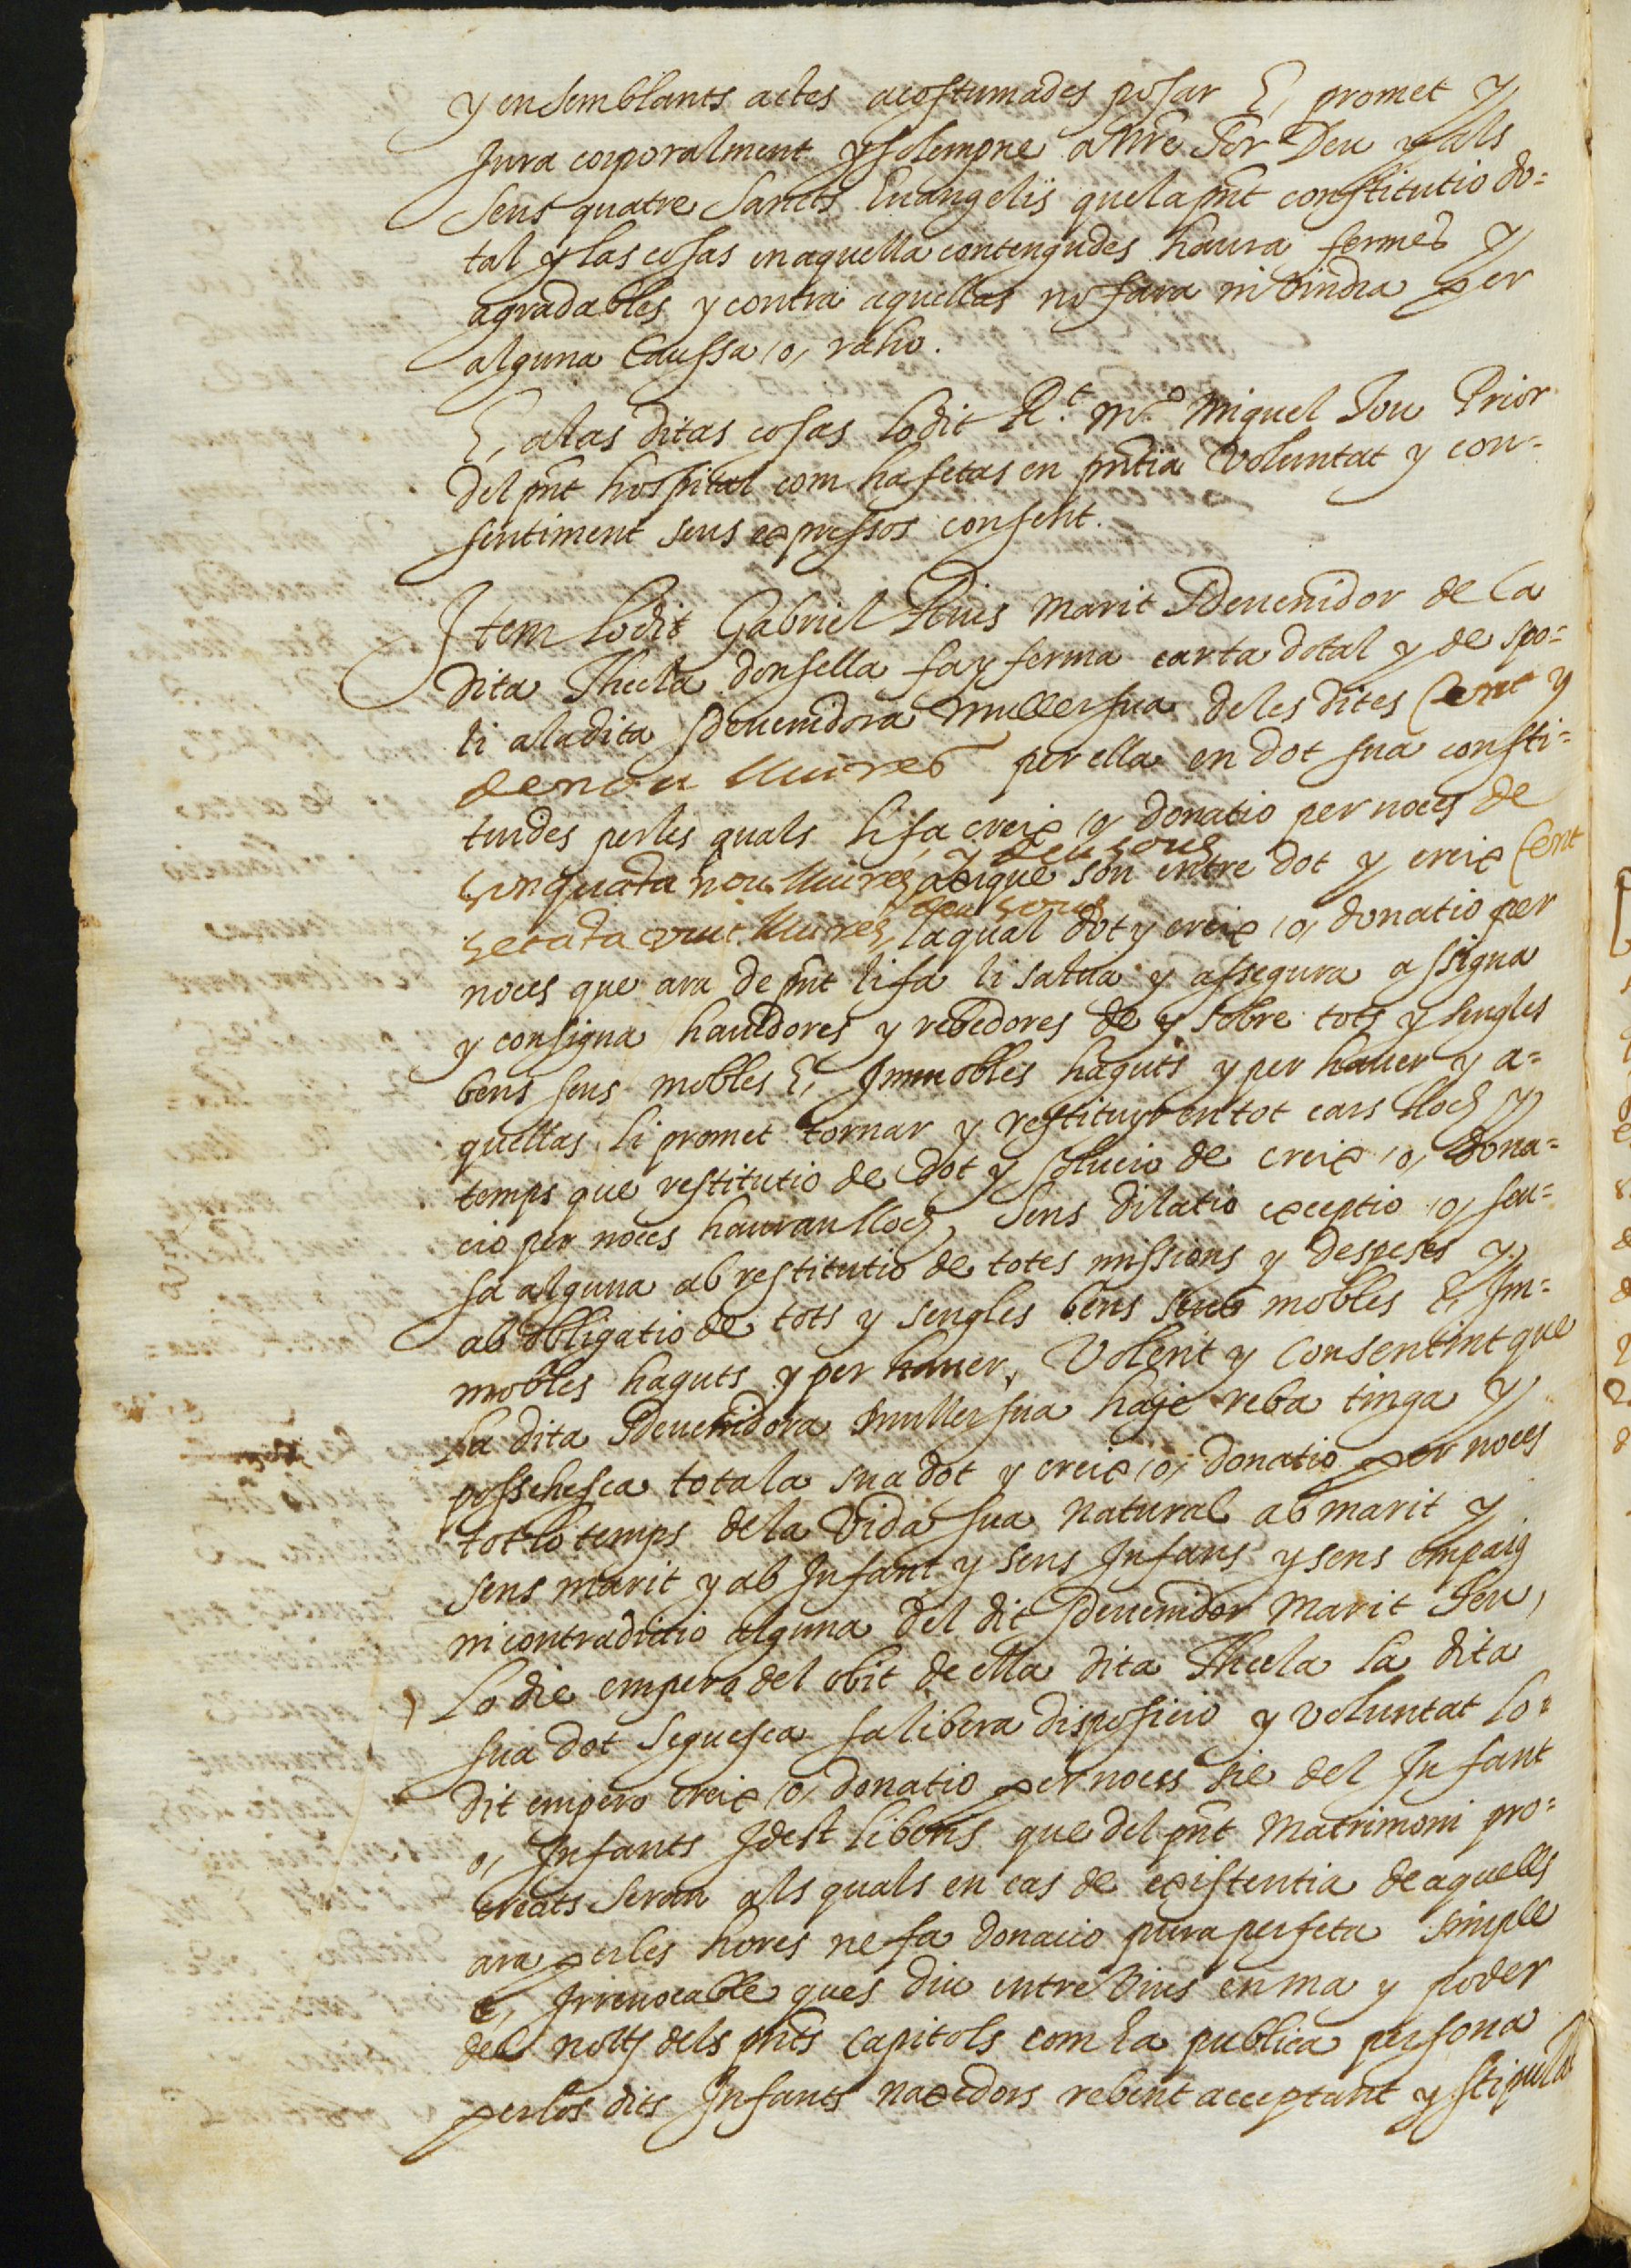 y en semblants actes acostumades posar E, promet y
Jura corporalment y solempne a Nre Sor Deu y als
seus quatre Sancts Euangelis que la pnt constitutio do=
tal y las cosas en aquella contengudes haura fermes y
agradables y contra aquellas no fara ni vindra per
alguna Caussa, o, raho.
E, a las ditas cosas lo dit Rt. Mo. Miquel Jou Prior
del pnt hospital com ha fetas en pntia voluntat y con=
sentiment seus expressos consent.
Item lo dit Gabriel Rius marit sdeuenidor de la
dita Thecla donsella fa y ferma carta dotal y de spo=
li a la dita sdeuenidora muller sua de les dites Cent y
denou lliures per ella en dot sua consti=
tuides per les quals li fa creix, o, donatio per noces de
y deu sous
sinquata nou lliures, axique son entre dot y creix Cent
deu sous
setata vuit lliures, la qual dot y creix, o, donatio per
noces que ara de pnt li fa li salua y assegura assigna
y consigna hauedores y rebedores de y sobre tots y sengles
bens seus mobles E, Immobles haguts y per hauer y a=
quellas li promet tornar y restituyr en tot cars lloch y
temps que restitutio de dot y solucio de creix, o, dona=
cio per noces hauran lloch, sens dilatio exceptio, o, scu=
sa alguna ab restitutio de totes missions y despeses y
ab obligatio de tots y sengles bens seus mobles E, Im=
mobles haguts y per hauer, Volent y Consentint que
la dita sdeuenidora muller sua haje reba tinga y
possehesca tota la sua dot y creix, o, donatio per noces
tot lo temps de la vida sua natural ab marit y
sens marit y ab Infant y sens Infans y sens empaig
ni contradictio alguna del dit sdeuenidor Marit Seu,
Lo die empero del obit de ella dita Thecla la dita
sua dot seguesca sa libera disposicio y voluntat lo=
dit empero creix, o, donatio per noces sie del Infant
o, Infants Idest liberis que del pnt Matrimoni pro=
creats seran als quals en cas de existentia de aquells
ara per les hores ne fa donacio pura perfeta simple
e, Irreuocable ques diu entre vius en ma y poder
del nott dels pnts Capitols com la publica persona
per los dits Infants naxedors rebent acceptant y stipula